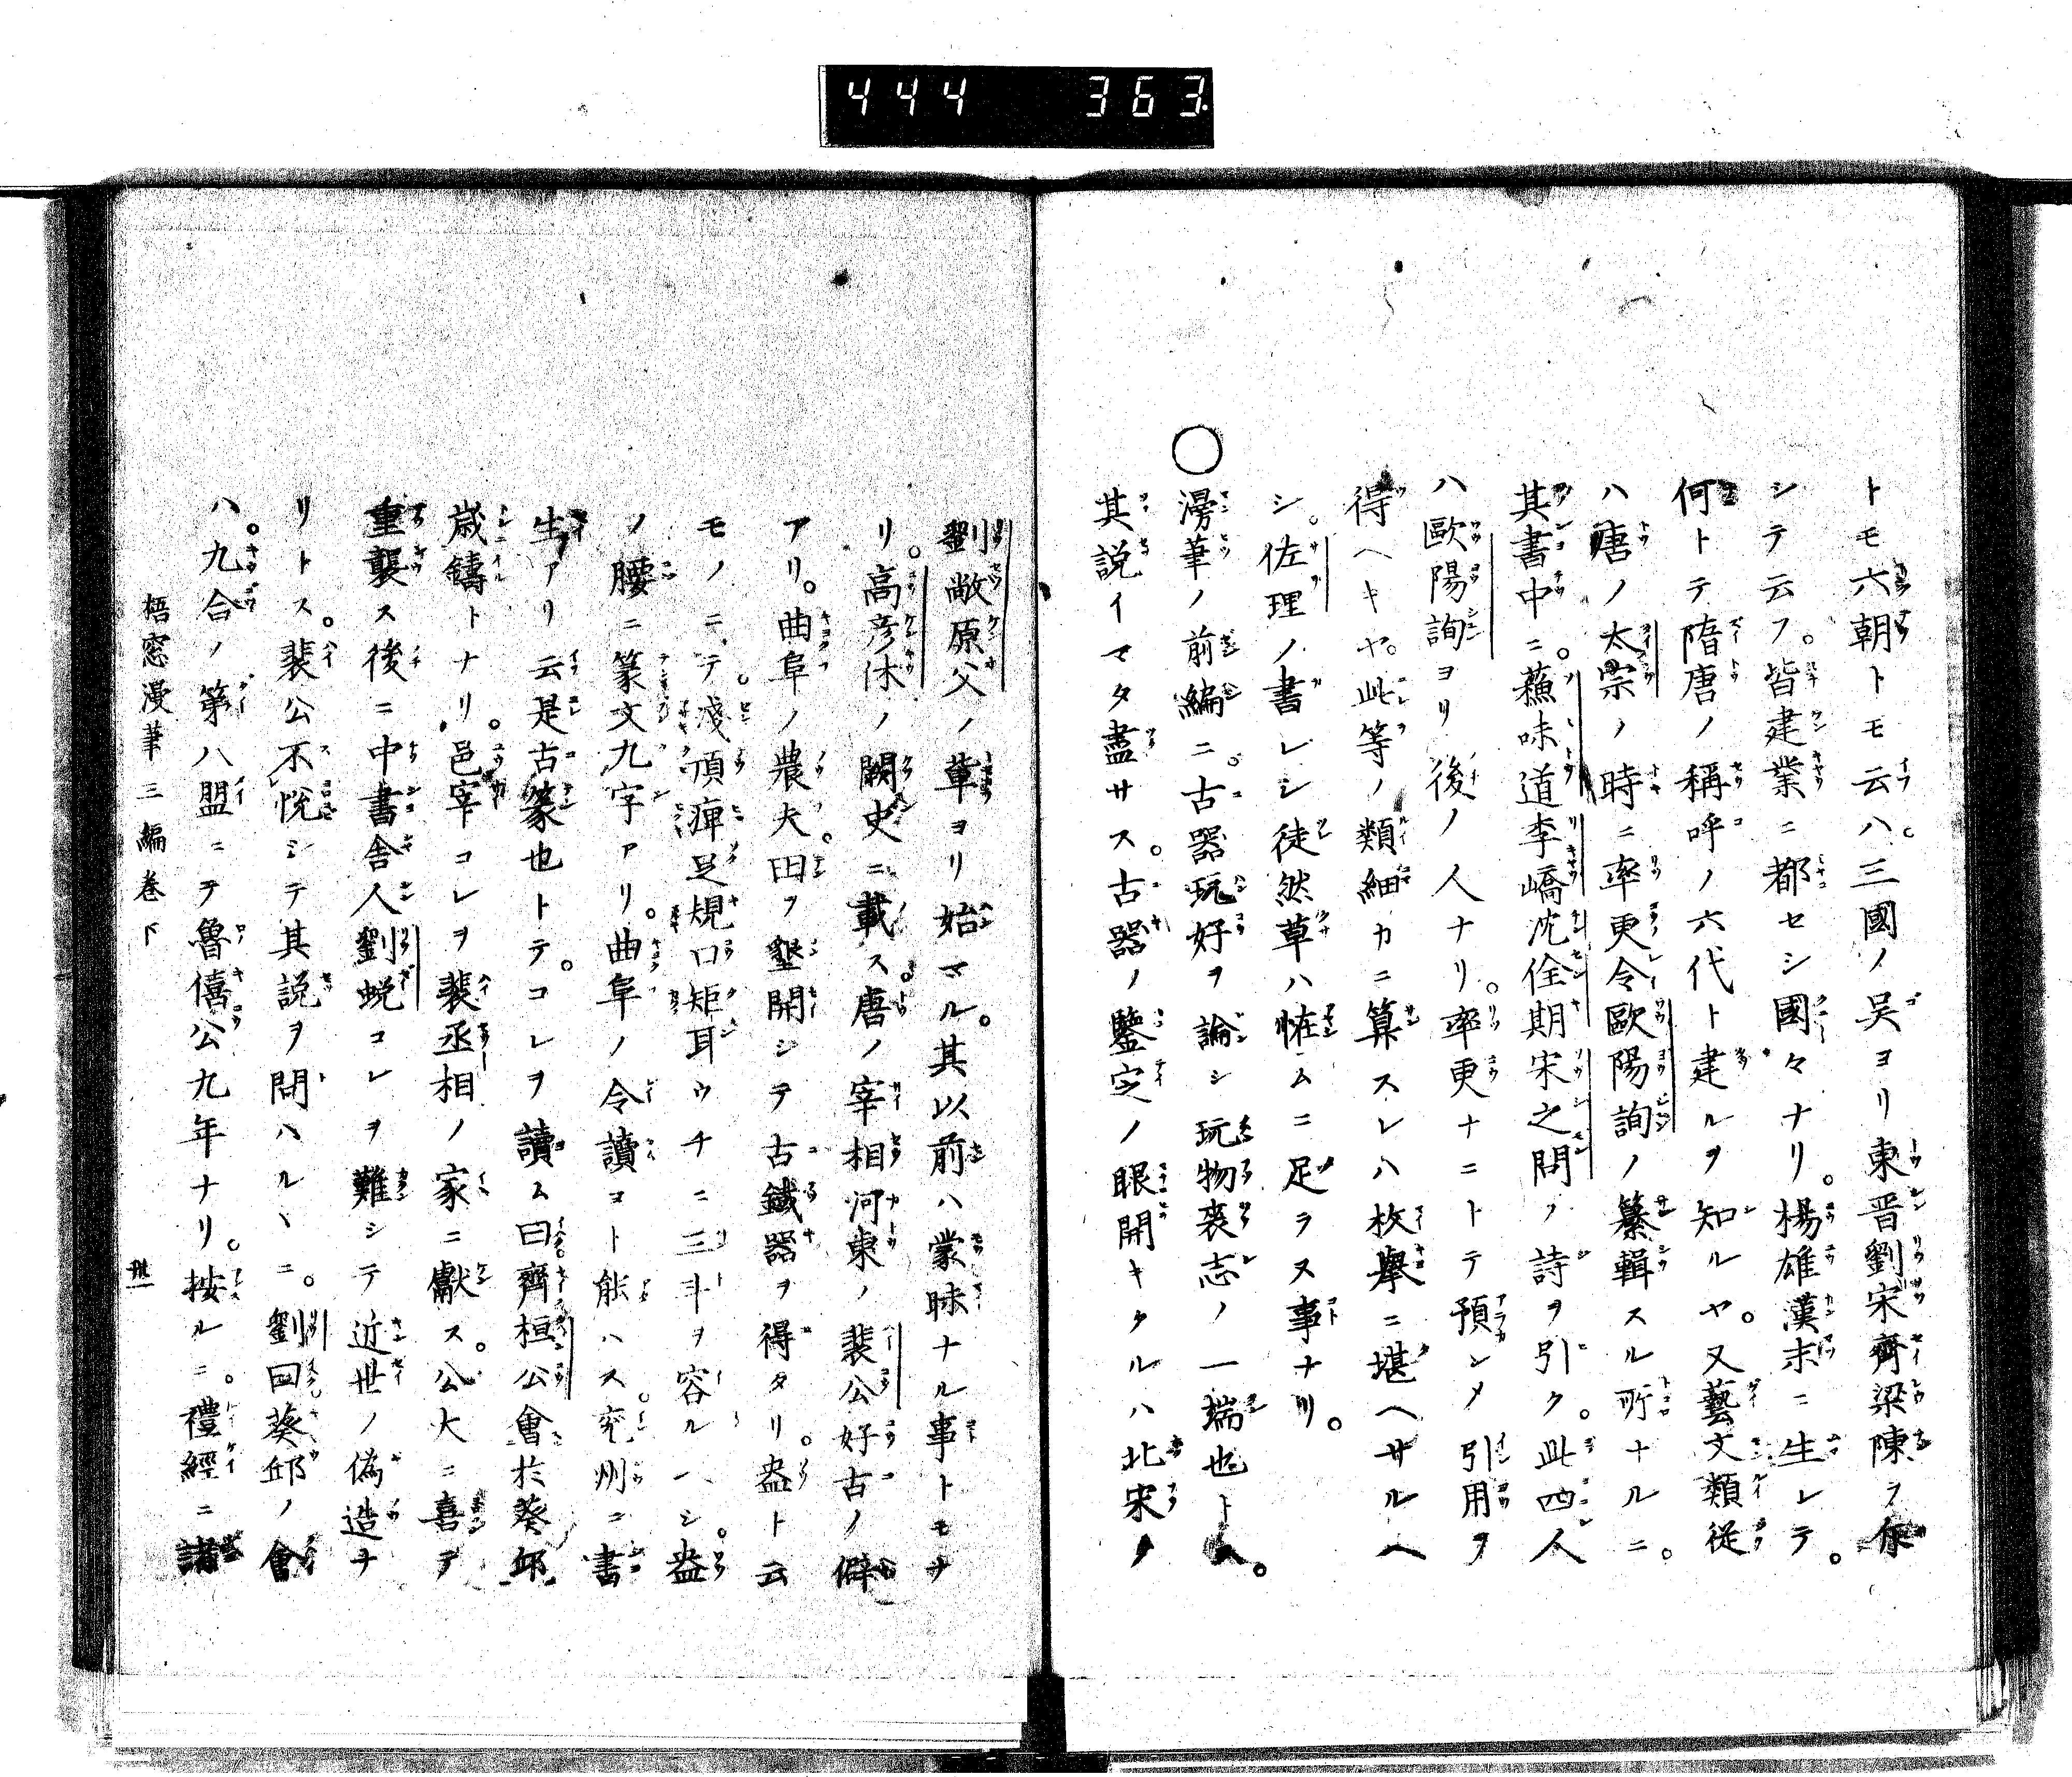 444 363.
トモ六朝トモ云ハ。三國ノ吴ヨリ東晋劉宋齊梁陳ヲ係
シテ云フ。皆建業ニ都セシ國々ナリ。楊雄漢末ニ生レテ。
何トテ隋唐ノ稱呼ノ六代ト建ルヲ知ルヤ。又藝文類従
ハ唐ノ太宗ノ時ニ率更令歐陽詢ノ纂輯スル所ナルニ。
其書中ニ。蘓味道李嶠沈佺期宋之問ノ詩ヲ引ク。此四人
ハ歐陽詢ヨリ後ノ人ナリ。率更ナニトテ預ジメ引用ヲ
得ヘキヤ。此等ノ類細カニ算スレハ枚擧ニ堪ヘサルヘ
シ。佐理ノ書レシ徒然草ハ恠ムニ足ラヌ事ナリ。
○漫筆ノ前編ニ。古器玩好ヲ論シ玩物喪志ノ一端也トス。
其説イマタ盡サス。古器ノ鑒定ノ眼開キタルハ北宋ノ
劉敞原父ノ輩ヨリ始マル。其以前ハ蒙昧ナル事トモナ
リ。高彦休ノ闕史ニ載ス。唐ノ宰相河東ノ裴公好古ノ僻
アリ。曲阜ノ農夫。田ヲ墾開シテ古鐵器ヲ得タリ。盎ト云
モノニテ。淺項痺足規口矩耳ウチニ三斗ヲ容ルヘシ。盎
ノ腰ニ篆文九字アリ。曲阜ノ令讀コト能ハス。兖州ニ書
生アリ云是古篆也トテ。コレヲ讀ム曰齊桓公會於葵邱
歳鑄トナリ。邑宰コレヲ裴丞相ノ家ニ獻ス。公大ニ喜テ
重襲ス後ニ中書舎人劉蛻コレヲ難シテ近世ノ偽造ナ
リトス。裴公不悅シテ其説ヲ問ハルヽニ。劉曰葵邱ノ會
ハ。九合ノ第八盟ニテ魯僖公九年ナリ。按ルニ。禮經ニ諸
梧窓漫筆三編巻下
卅一